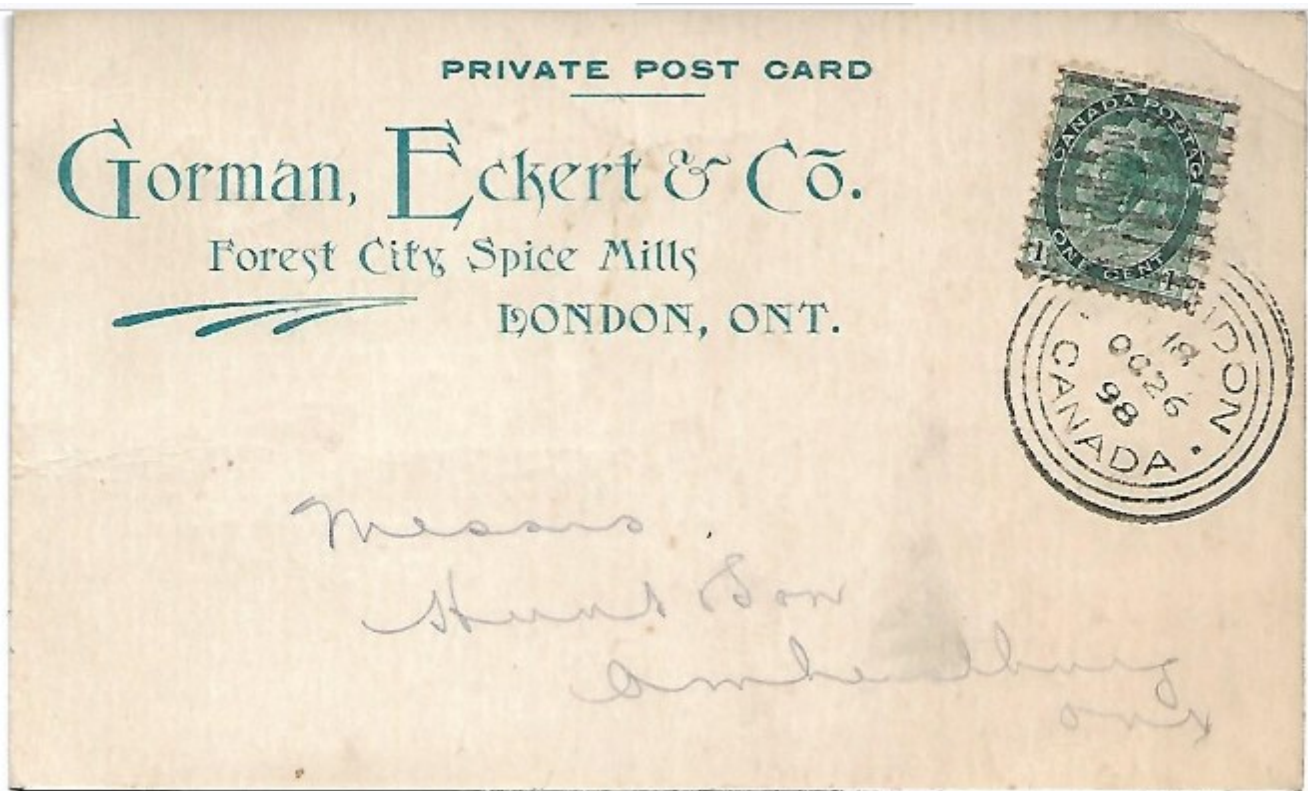 PRIVATE POST CARD
Gorman, Eckert & Co.
Forest City Spice Mills
LONDON, ONT.
CANADA POSTAGE
1 ONE CENT 1
18
OC 26
98
CANADA
Messrs
Hunt Son
Amherstburg
Ont